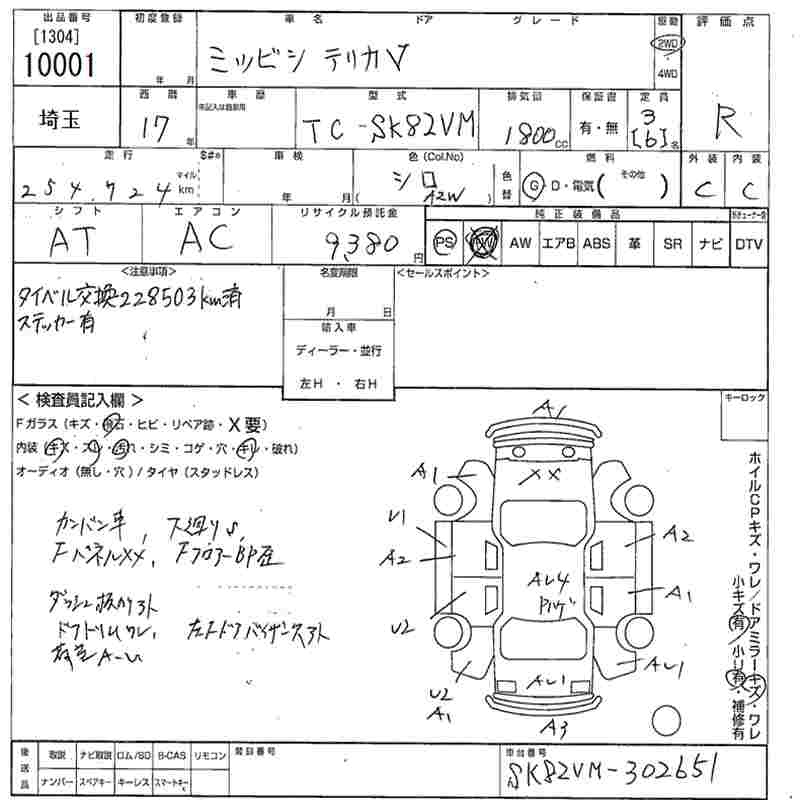 出品番号 初度登録 車名 ドア グレード 駆動 評価点
[1304]
10001 年 月 ミツビシ デリカV 2WD 4WD R
埼玉 西暦 17 年 車歴 型式 TC-SK82VM 排気量 1800 cc 保証書 有・無 定員 3 [6] 名
走行 254,724 マイル km S#※ 車検 年 月 色 (Col.No) シロ ( A2W ) 色替 燃料 G・D・電気 ( その他 ) 外装 C 内装 C
シフト AT エアコン AC リサイクル預託金 9,380 円 純正装備品
PS PW AW エアB ABS 革 SR ナビ DTV
<注意事項> 名変期限 <セールスポイント>
タイベル交換228503km済
ステッカー有
月 日
輸入車
ディーラー・並行
左H ・ 右H
< 検査員記入欄 > キーロック
Fガラス (キズ・飛石・ヒビ・リペア跡・X要)
内装 (キズ・スレ・汚れ・シミ・コゲ・穴・キレ・破れ)
オーディオ (無し・穴) / タイヤ (スタッドレス)
カンバン車, 下廻りS,
FパネルXX, FフロアーBP歪
A1
XX
A1
U1
A2
A2
AU4
A1
U2
AU1
U2
A1
AU1
A3
ホイルCPキズ・ワレ/ドアミラーキズ・ワレ
小キズ有/小U有・補修有
後送品 取説 ナビ取説 ロム/SD B-CAS リモコン
ナンバー スペアキー キーレス スマートキー
車台番号
SK82VM-302651